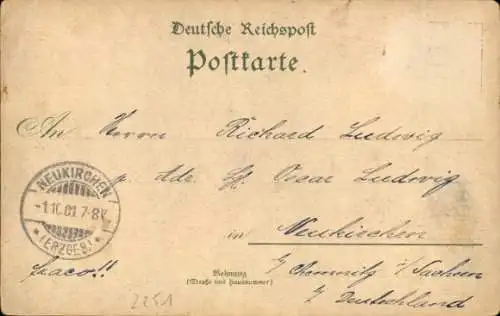 Deutsche Reichspost
Postkarte.
An Herrn Richard Ludwig
Adr. Oscar Ludwig
NEUKIRCHEN
-1.10.01 7-8V.
* (ERZGEB.) *
in Neukirchen
b/ Chemnitz i/ Sachsen
Deutschland
Wohnung
(Straße und Hausnummer)
2251